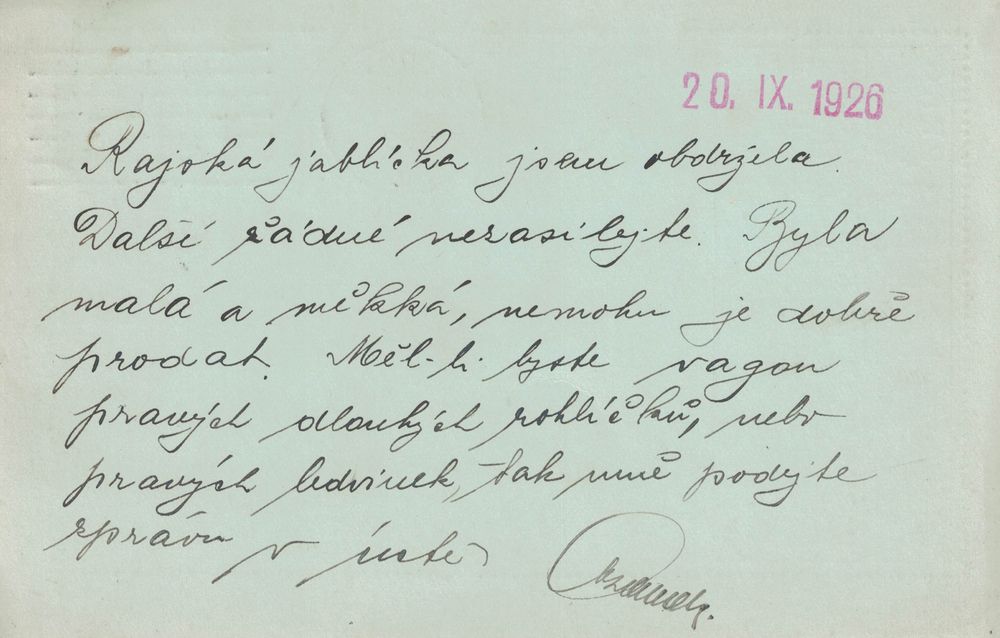 20. IX. 1926
Rajská jablíčka jsem obdržela.
Další řádné nezasilejte. Byla
malá a měkká, nemohu je dobře
prodat. Měl-li byste vagon
pravých dlouhých rohlíčků, nebo
pravých ledvinek, tak mně podejte
zprávu v